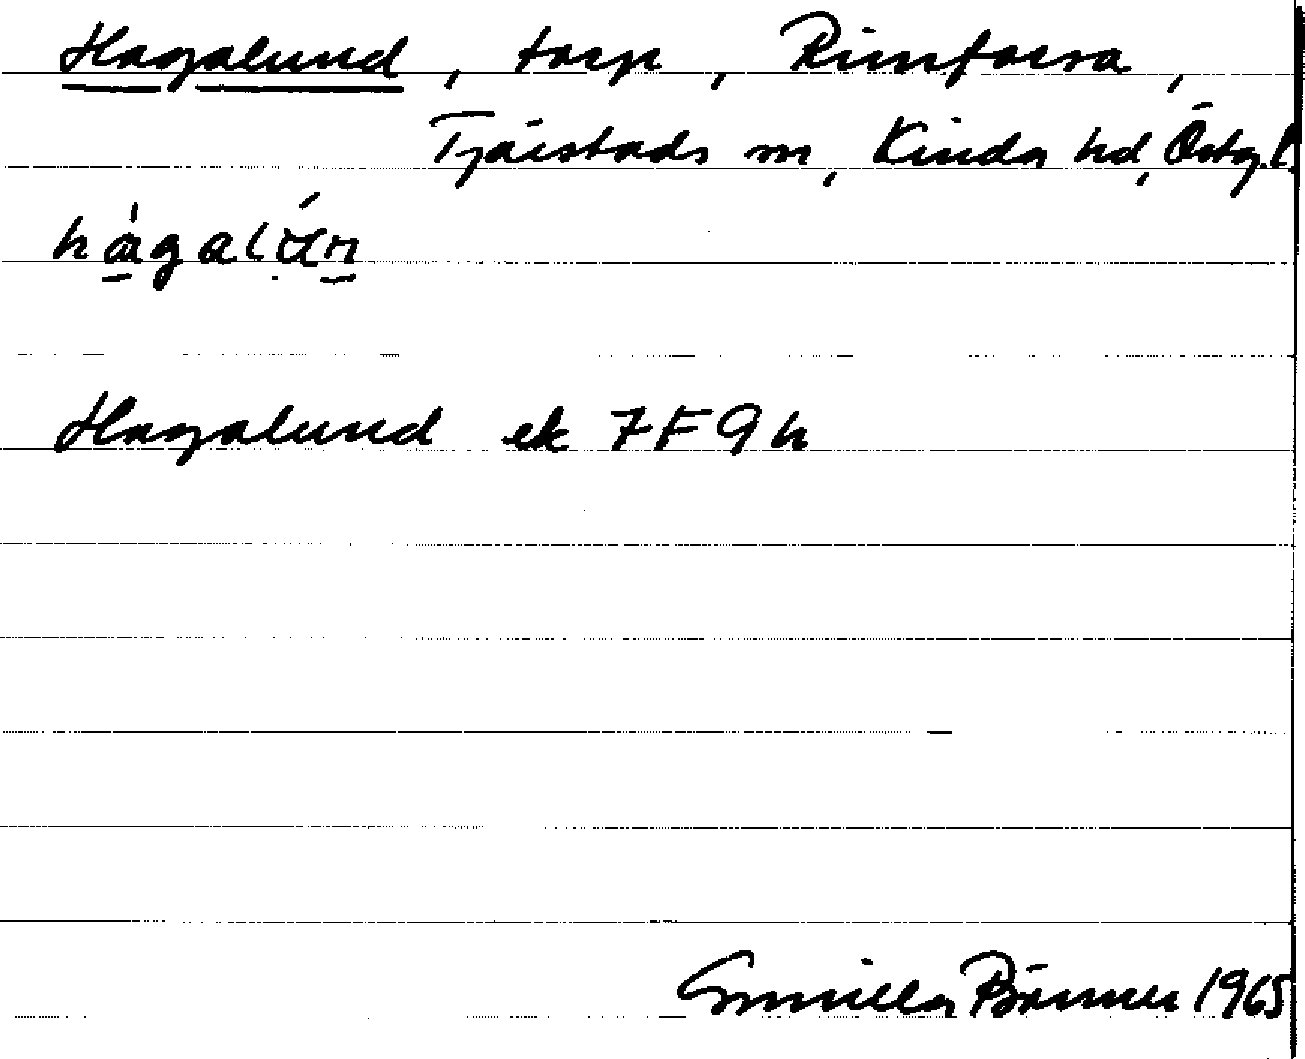 Hagalund, torp, Rimforsa,
Tjärstads sn, Kinda hd, Östg.l.
hågalún
Hagalund ek 7F9h
Gunilla 1965